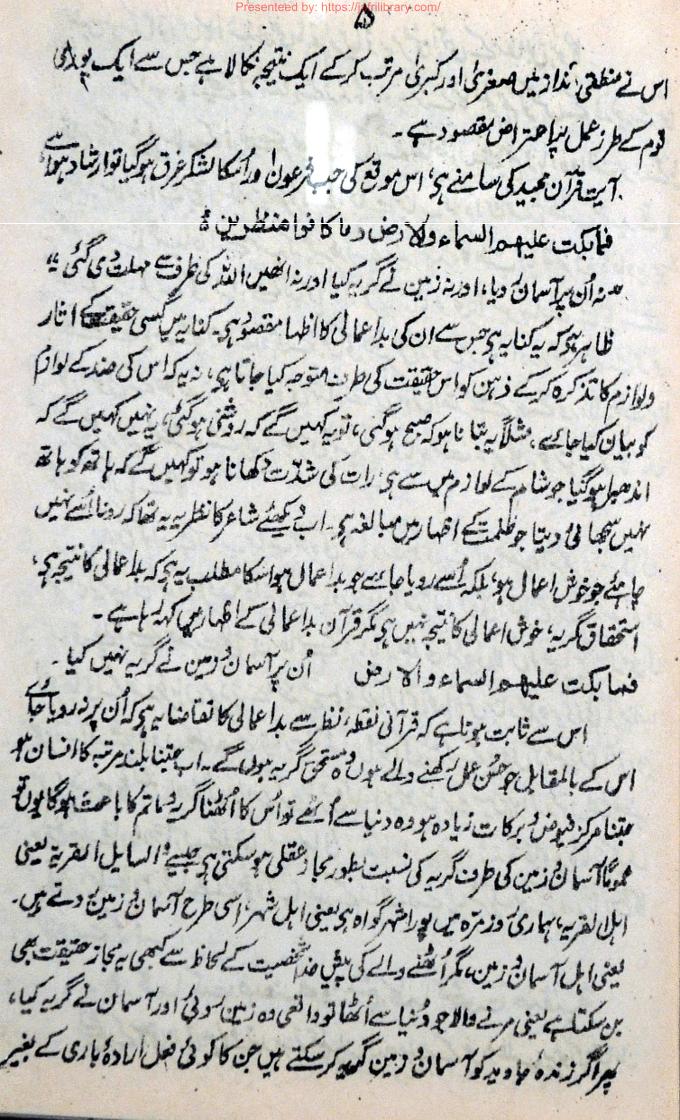 Presenteed by: https://jafrilibrary.com/
۵
اس نے منطقی انداز میں صغریٰ اور کبریٰ مرتب کر کے ایک نتیجہ نکالا ہے جس سے ایک پوری
قوم کے طرز عمل پر اعتراض مقصود ہے ۔
آیت قرآن مجید کی سامنے ہی، اس موقع کی جب فرعون اور اسکا لشکر غرق ہو گیا تو ارشاد ہوا ہے
فما بکت علیہم السماء والارض وما کانوا منظرین ہ
”نہ اُن پر آسمان رویا، اور نہ زمین نے گریہ کیا اور نہ انھیں اللہ کی طرف سے مہلت دی گئی“
ظاہر ہو کہ یہ کنایہ ہی جس سے ان کی بد اعمالی کا اظہار مقصود ہی۔ کنایہ میں کسی حقیقت کے آثار
ولوازم کا تذکرہ کر کے ذہن کو اس حقیقت کی طرف متوجہ کیا جاتا ہی، نہ یہ کہ اس کی ضد کے لوازم
کو بیان کیا جائے، مثلاً یہ بتانا ہو کہ صبح ہو گئی، تو یہ کہیں گے کہ روشنی ہو گئی، یہ نہیں کہیں گے کہ
اندھیرا ہو گیا جو شام کے لوازم میں سے ہی رات کی شدت دکھانا ہو تو کہیں گے کہ ہاتھ کو ہاتھ
نہیں سجھائی دیتا جو ظلمت کے اظہار میں مبالغہ ہی۔ اب دیکھئے شاعر کا نظریہ یہ تھا کہ رونا اُسے نہیں
چاہئے جو خوش اعمال ہو، بلکہ اُسے رویا جائے جو بد اعمال ہو اسکا مطلب یہ ہی کہ بد اعمالی کا نتیجہ ہی،
استحقاق گریہ، خوش اعمالی کا نتیجہ نہیں ہی مگر قرآن بد اعمالی کے اظہار میں کہہ رہا ہے ۔
فما بکت علیہم السماء والارض اُن پر آسمان و زمین نے گریہ نہیں کیا ۔
اس سے ثابت ہوتا ہے کہ قرآنی نقطۂ نظر سے بد اعمالی کا تقاضا یہ ہی کہ اُن پر نہ رویا جائے
اس کے بالمقابل جو حسن عمل رکھنے والے ہوں وہ مستحق گریہ ہوں گے۔ اب جتنا بلند مرتبہ کا انسان ہو
جتنا مرکز فیوض و برکات زیادہ ہو وہ دنیا سے اُٹھے تو اُس کا اُٹھنا گریہ و ماتم کا باعث ہو گا یوں تو
عموماً آسمان و زمین کی طرف گریہ کی نسبت بطور مجاز عقلی ہو سکتی ہی جیسے والسایل القریة یعنی
اہل القریہ، ہماری روزمرہ میں پورا شہر گواہ ہی یعنی اہل شہر، اسی طرح آسمان و زمین روتے ہیں۔
یعنی اہل آسمان و زمین، مگر اُٹھنے والے کی شخصیت کے لحاظ سے کبھی یہ مجاز حقیقت بھی
بن سکتا ہے یعنی مرنے والا جو دُنیا سے اُٹھا تو واقعی وہ زمین روئی اور آسمان نے گریہ کیا،
پھر اگر زندۂ جاوید کو آسمان و زمین گریہ کر سکتے ہیں جن کا کوئی فعل ارادۂ باری کے بغیر